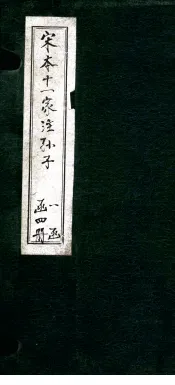 宋本十一家注孙子
一函
函四册